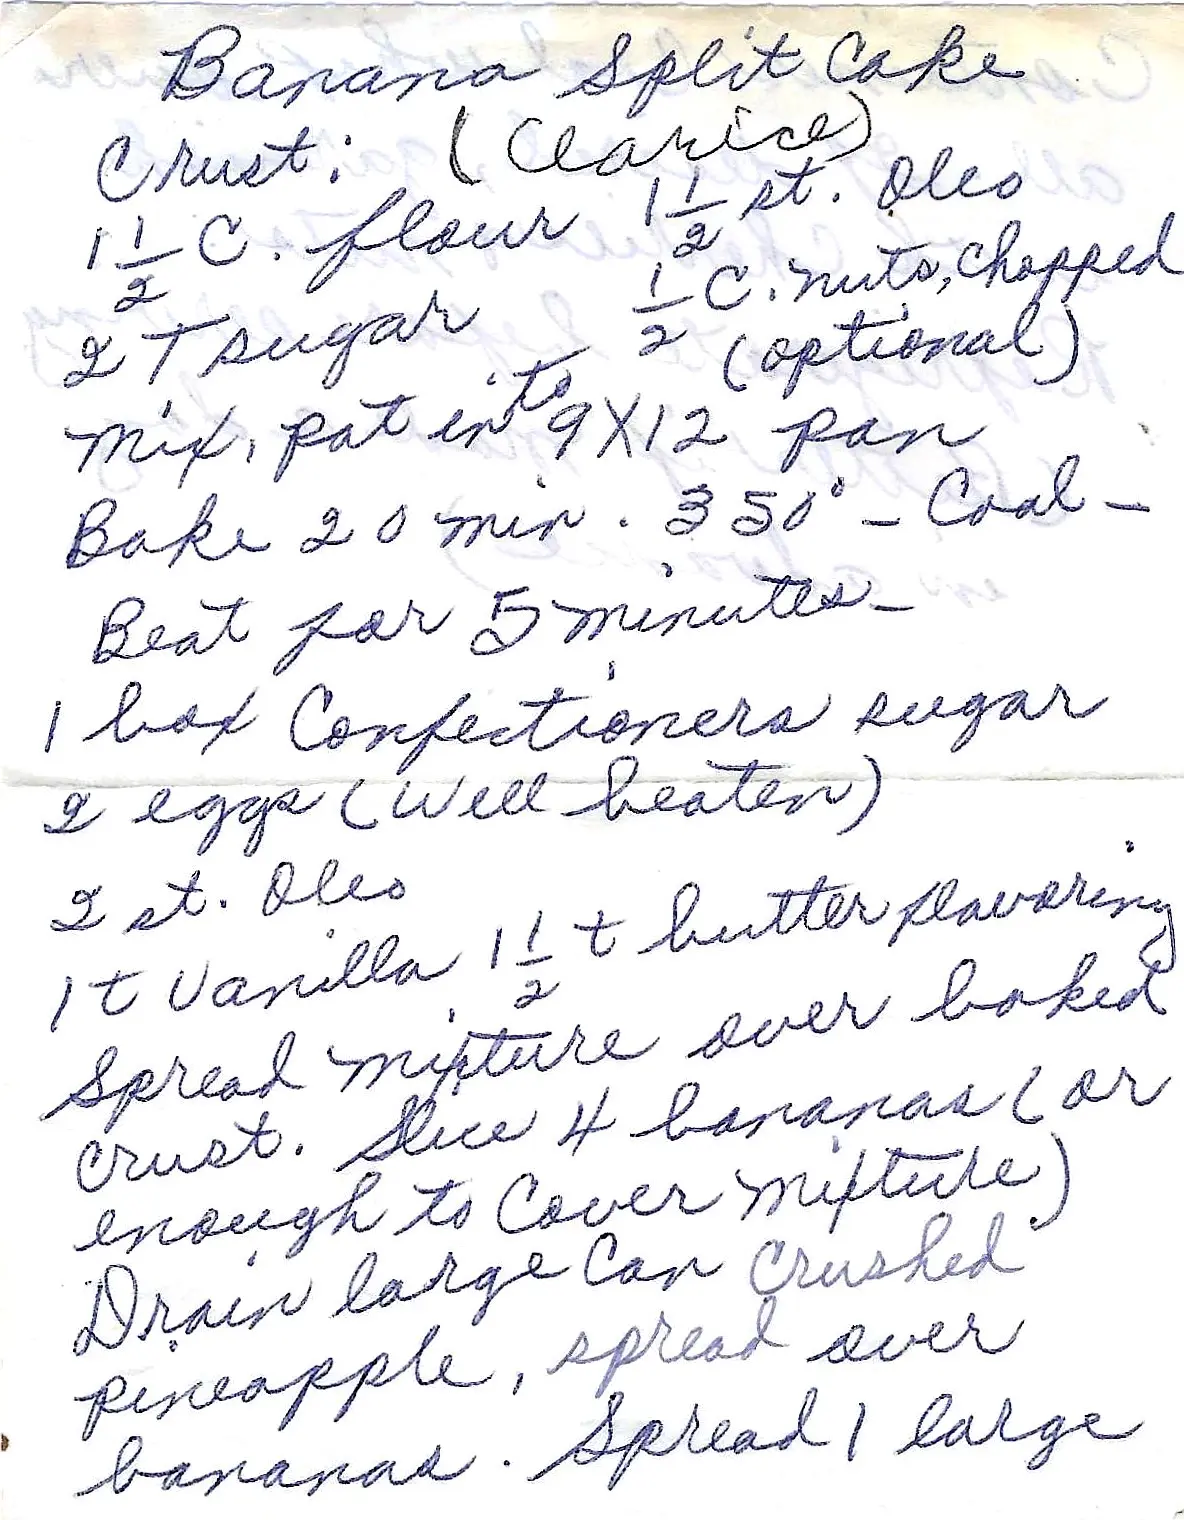 Banana Split Cake
Crust: (Clarice)
1 1/2 C. flour 1 1/2 st. Oleo
2 T sugar 1/2 C. nuts, chopped
(optional)
Mix, pat into 9X12 pan
Bake 20 min. 350° - Cool -
Beat for 5 minutes -
1 box Confectioners sugar
2 eggs (well beaten)
2 st. Oleo
1 t Vanilla 1 1/2 t butter flavoring
Spread mixture over baked
crust. Slice 4 bananas (or
enough to Cover mixture)
Drain large Can Crushed
pineapple, spread over
bananas. Spread 1 large